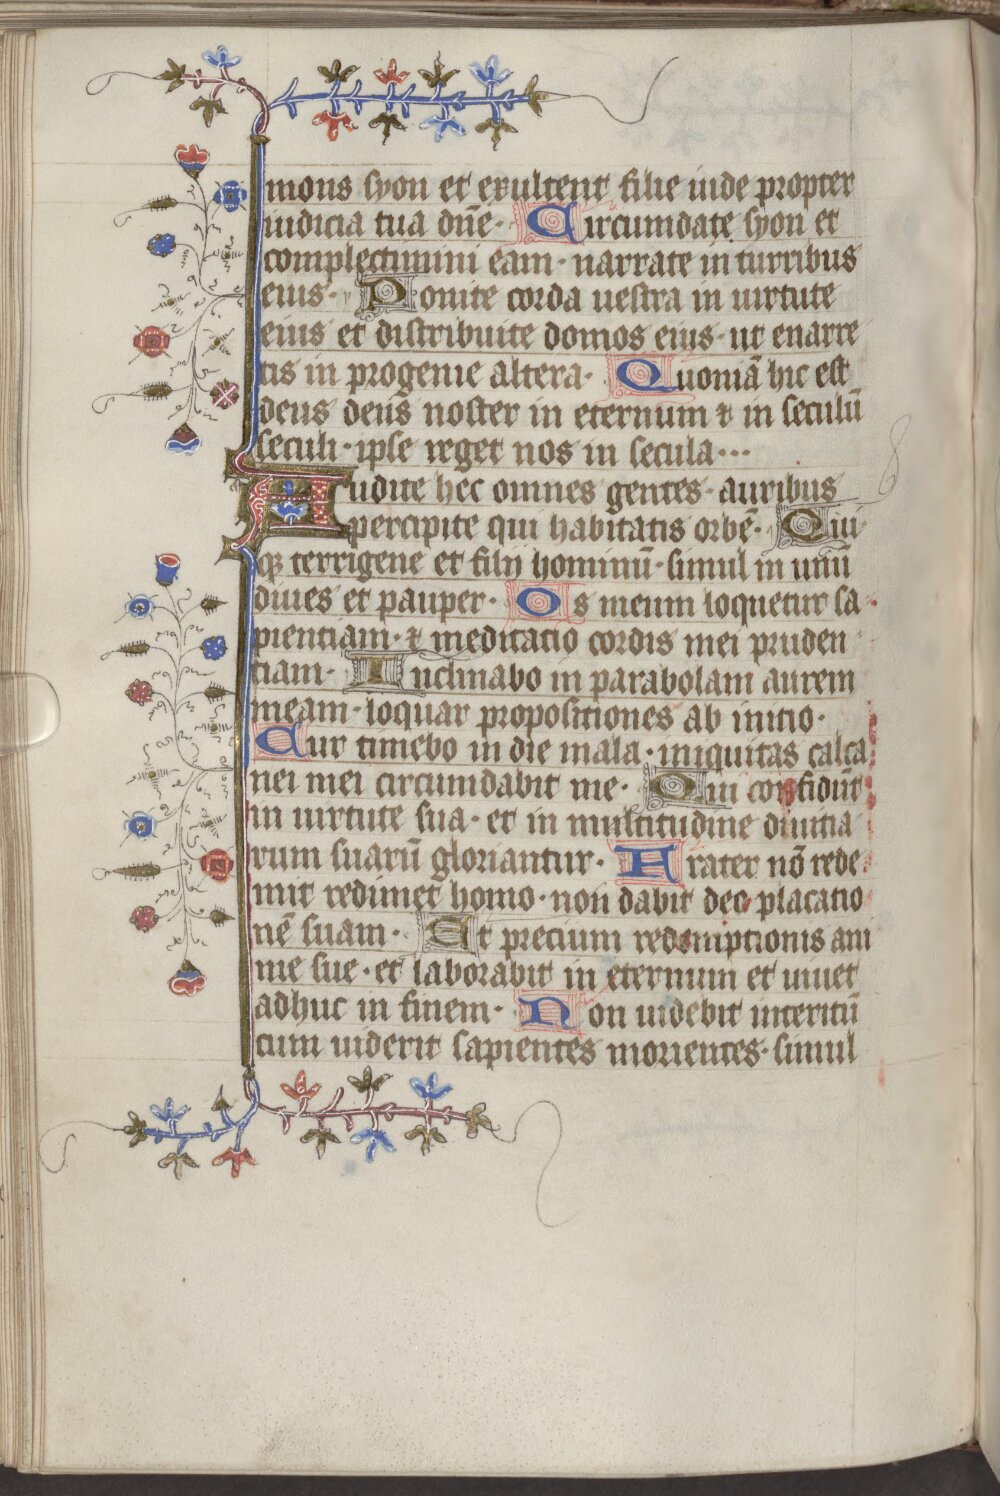 mons syon et exultent filie iude propter
iudicia tua dn̄e · Circumdate syon et
complectimini eam · narrate in turribus
eius · Ponite corda uestra in uirtute
eius et distribuite domos eius · ut enarre
tis in progenie altera · Quoniā hic est
deus deus noster in eternum ⁊ in seculū
seculi · ipse reget nos in secula ···
Audite hec omnes gentes · auribus
percipite qui habitatis orbē · Qui
qꝫ terrigene et filij hominū · simul in unū
diues et pauper · Os meum loquetur sa
pientiam · ⁊ meditatio cordis mei pruden
tiam · Inclinabo in parabolam aurem
meam · loquar propositiones ab initio ·
Cur timebo in die mala · iniquitas calca
nei mei circumdabit me · Qui confidūt
in uirtute sua · et in multitudine diuitia
rum suarū gloriantur · Frater nō rede
mit redimet homo · non dabit deo placatio
nē suam · Et precium redemptionis ani
me sue · et laborabit in eternum et uiuet
adhuc in finem · Non uidebit interitū
cum uiderit sapientes morientes · simul